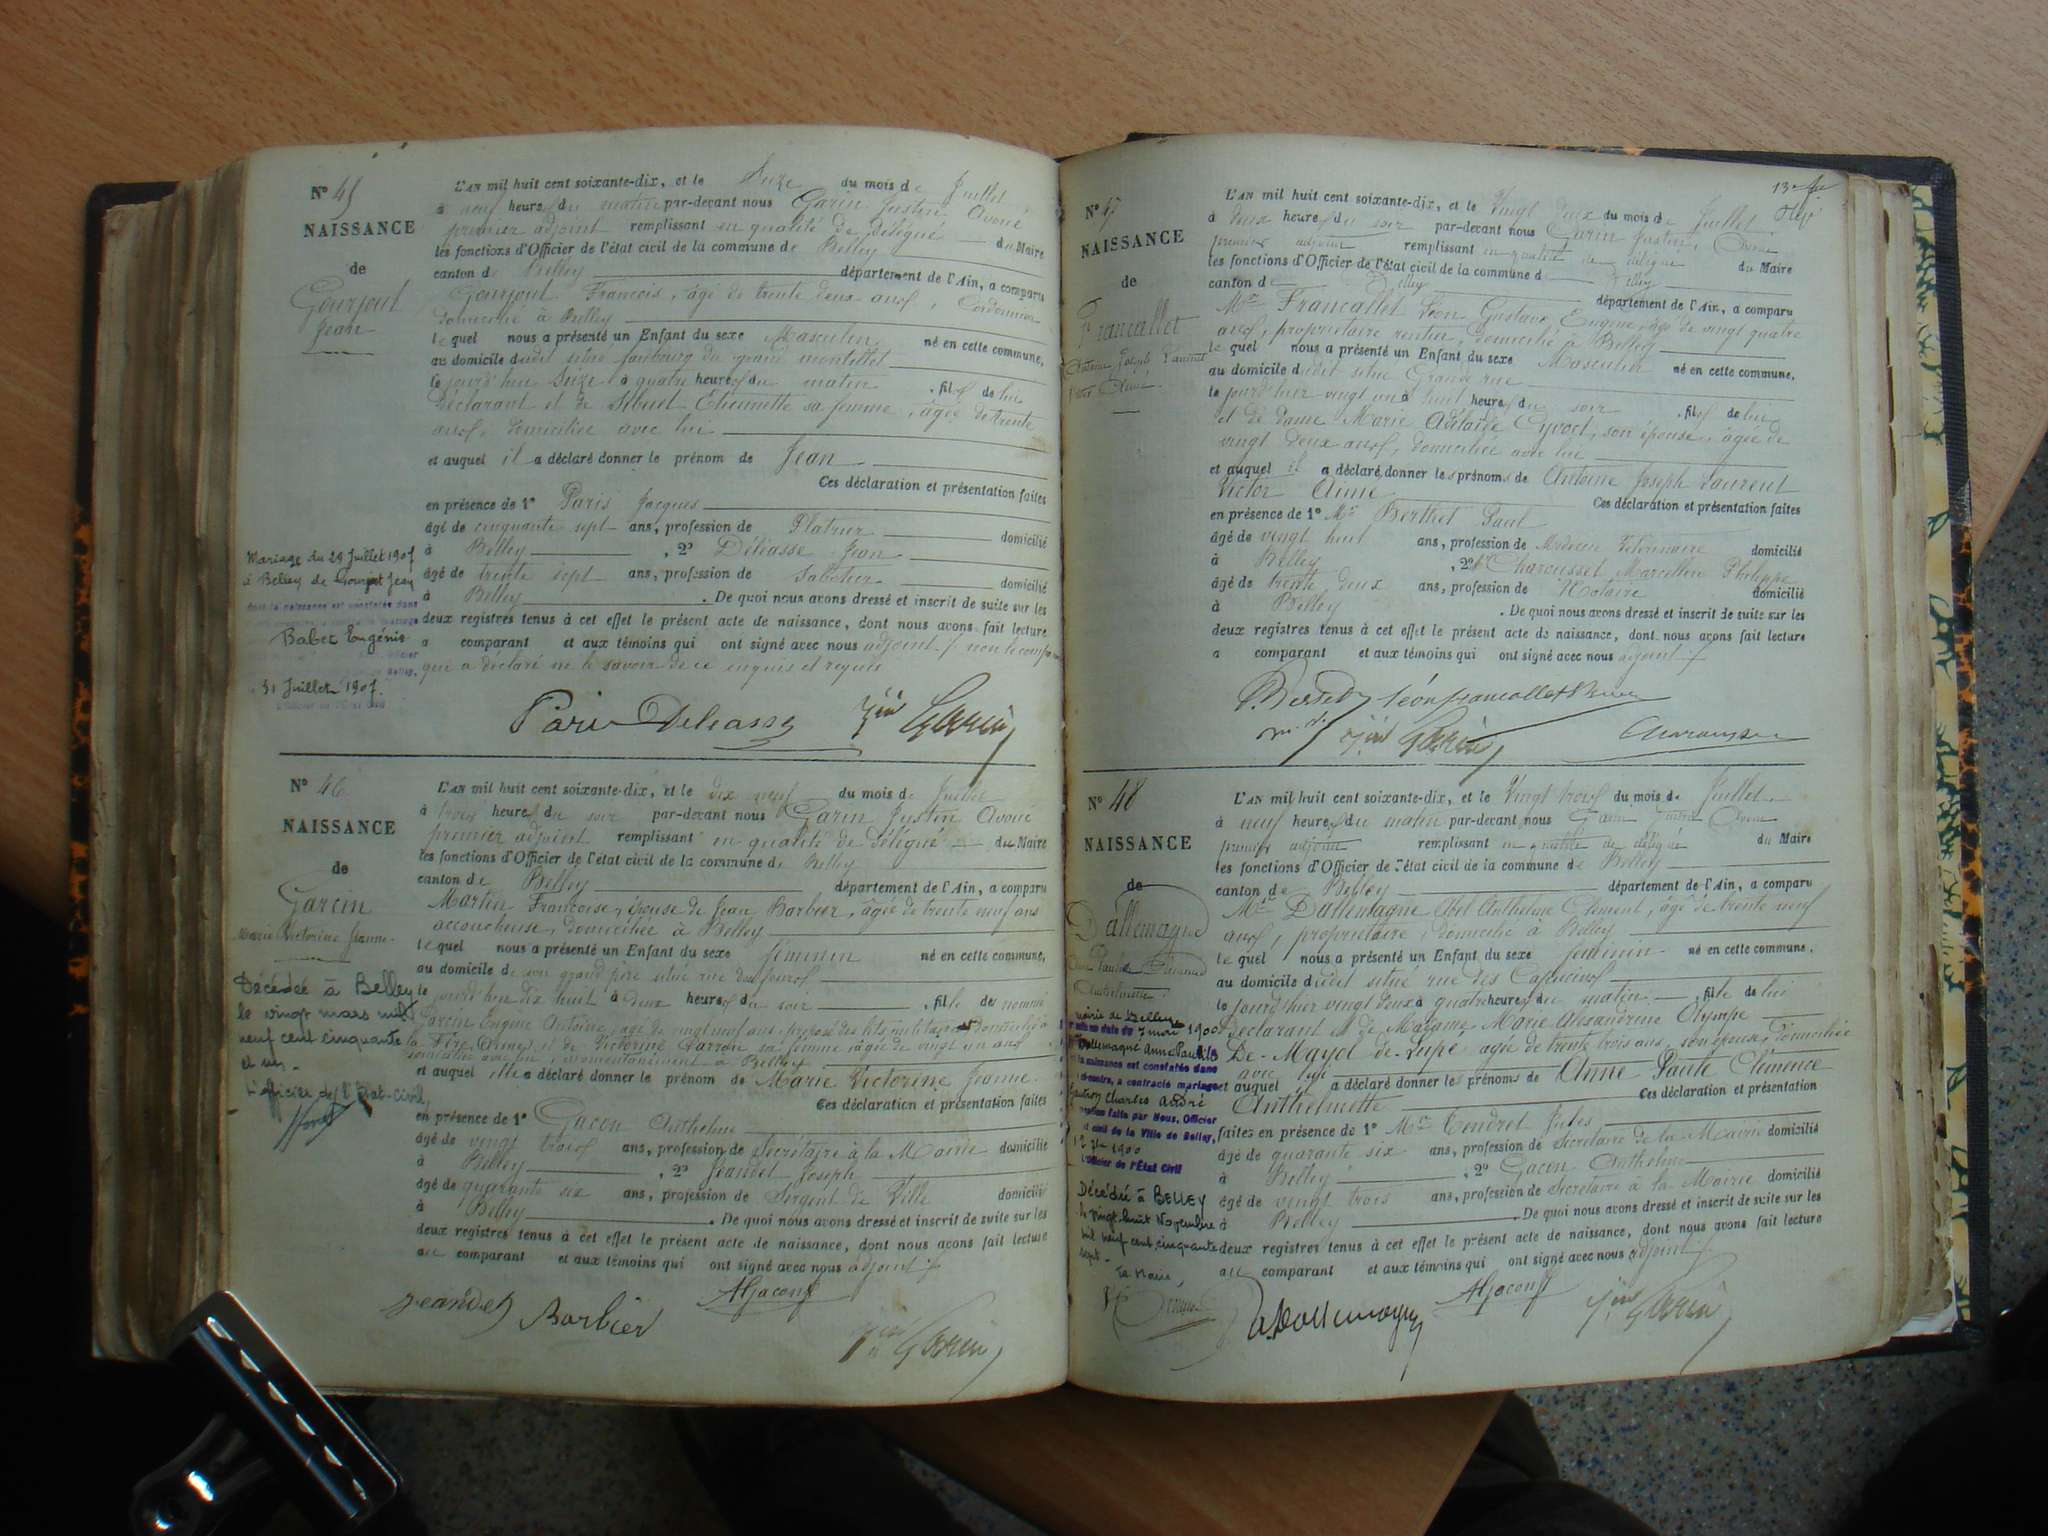 N° 45
NAISSANCE
de
Gourjout
Jean
L'AN mil huit cent soixante-dix, et le Seize du mois de Juillet
à neuf heures du matin par-devant nous Garin Justin, Avoué
premier adjoint remplissant en qualité de délégué du Maire
les fonctions d'Officier de l'état civil de la commune de Belley
canton de Belley département de l'Ain, a comparu
Gourjout François, âgé de trente deux ans, Cordonnier
domicilié à Belley
lequel nous a présenté un Enfant du sexe Masculin né en cette commune,
au domicile dudit situé faubourg du grand
le jourd'hui Seize à quatre heures du matin, fils de lui
déclarant et de Etiennette sa femme, âgée de trente
ans, domiciliée avec lui
et auquel il a déclaré donner le prénom de Jean
Ces déclaration et présentation faites
en présence de 1° Paris Jacques
âgé de cinquante sept ans, profession de Platrier domicilié
à Belley, 2° Déléasse Jean
âgé de trente sept ans, profession de Sabotier domicilié
à Belley. De quoi nous avons dressé et inscrit de suite sur les
deux registres tenus à cet effet le présent acte de naissance, dont nous avons fait lecture
a comparant et aux témoins qui ont signé avec nous adjoint, non le comparant
qui a déclaré ne le savoir de ce enquis et requis
Mariage du 29 Juillet 1907
à Belley de Gourjout Jean
dont la naissance est constatée dans
Babet Eugénie
31 Juillet 1907.
Paris Deleasse Jin Garin
N° 46
NAISSANCE
de
Garcin
Marie Victorine Jeanne
L'AN mil huit cent soixante-dix, et le dix neuf du mois de Juillet
à trois heures du soir par-devant nous Garin Justin Avoué
premier adjoint remplissant en qualité de délégué du Maire
les fonctions d'Officier de l'état civil de la commune de Belley
canton de Belley département de l'Ain, a comparu
Martin Françoise, épouse de Jean Barbier, âgée de trente neuf ans
accoucheuse, domiciliée à Belley
lequel nous a présenté un Enfant du sexe féminin né en cette commune,
au domicile de son grand père situé rue des fours
le jourd'hui dix huit à deux heures du soir, fille de nommé
Garcin Eugène Antoine, âgé de vingt neuf ans, préposé des lits militaires domicilié à
la Fère (Aisne) et de Victorine Carron sa femme âgée de vingt un ans
domiciliée avec lui, momentanément à Belley
et auquel elle a déclaré donner le prénom de Marie Victorine Jeanne
Ces déclaration et présentation faites
en présence de 1° Gacon Anthelme
âgé de vingt trois ans, profession de Secrétaire à la Mairie domicilié
à Belley, 2° Jeandet Joseph
âgé de quarante six ans, profession de Sergent de Ville domicilié
à Belley. De quoi nous avons dressé et inscrit de suite sur les
deux registres tenus à cet effet le présent acte de naissance, dont nous avons fait lecture
au comparant et aux témoins qui ont signé avec nous adjoint
Décédée à Belley
le vingt mars mil
neuf cent cinquante
et un.
L'officier de l'Etat-civil,
Jeandet Barbier AGacon Jin Garin
13e
N° 47
NAISSANCE
de
Francallet
Antoine Joseph Laurent
Victor Aimé
L'AN mil huit cent soixante-dix, et le Vingt deux du mois de Juillet
à deux heures du soir par-devant nous Garin Justin, Avoué
premier adjoint remplissant en qualité de délégué du Maire
les fonctions d'Officier de l'état civil de la commune de Belley
canton de Belley département de l'Ain, a comparu
Mr Francallet Léon Gustave Eugène, âgé de vingt quatre
ans, propriétaire rentier, domicilié à Belley
lequel nous a présenté un Enfant du sexe Masculin né en cette commune,
au domicile dudit situé Grande rue
le jourd'hier vingt un à huit heures du soir, fils de lui
et de dame Marie Adélaïde Cyvoct, son épouse, âgée de
vingt deux ans, domiciliée avec lui
et auquel il a déclaré donner les prénoms de Antoine Joseph Laurent
Victor Aimé Ces déclaration et présentation faites
en présence de 1° Mr Berthet Paul
âgé de vingt huit ans, profession de Médecin Vétérinaire domicilié
à Belley, 2° Mr Charousset Marcellin Philippe
âgé de trente deux ans, profession de Notaire domicilié
à Belley. De quoi nous avons dressé et inscrit de suite sur les
deux registres tenus à cet effet le présent acte de naissance, dont nous avons fait lecture
a comparant et aux témoins qui ont signé avec nous adjoint
Léon Francallet
Jin Garin
N° 48
NAISSANCE
de
Dallemagne
Anne Paule Clémence
Anthelmette
L'AN mil huit cent soixante-dix, et le Vingt trois du mois de Juillet
à neuf heures du matin par-devant nous Garin Justin Avoué
premier adjoint remplissant en qualité de délégué du Maire
les fonctions d'Officier de l'état civil de la commune de Belley
canton de Belley département de l'Ain, a comparu
Mr Dallemagne Abel Anthelme Clément, âgé de trente neuf
ans, propriétaire, domicilié à Belley
lequel nous a présenté un Enfant du sexe féminin né en cette commune,
au domicile dudit situé rue des Capucins
le jourd'hier vingt deux à quatre heures du matin, fille de lui
déclarant et de Madame Marie Alexandrine Olympe
De-Mayol de-Lupé agée de trente trois ans, son épouse, domiciliée
avec lui
et auquel a déclaré donner les prénoms de Anne Paule Clémence
Anthelmette Ces déclaration et présentation
faites en présence de 1° Mr Tendret Jules
âgé de quarante six ans, profession de Secrétaire de la Mairie domicilié
à Belley, 2° Gacon Anthelme
âgé de vingt trois ans, profession de Secrétaire à la Mairie domicilié
à Belley. De quoi nous avons dressé et inscrit de suite sur les
deux registres tenus à cet effet le présent acte de naissance, dont nous avons fait lecture
au comparant et aux témoins qui ont signé avec nous adjoint
mairie de Belley
date du 7 mai 1900
Dallemagne Anne Paule
la naissance est constatée dans
ci-contre, a contracté mariage
Charles André
mention faite par Nous, Officier
civil de la Ville de Belley,
1900
L'Officier de l'État Civil
Décédée à BELLEY
le vingt-huit Novembre
mil neuf cent cinquante
sept.
Le Maire,
Dallemagne AGacon Jin Garin